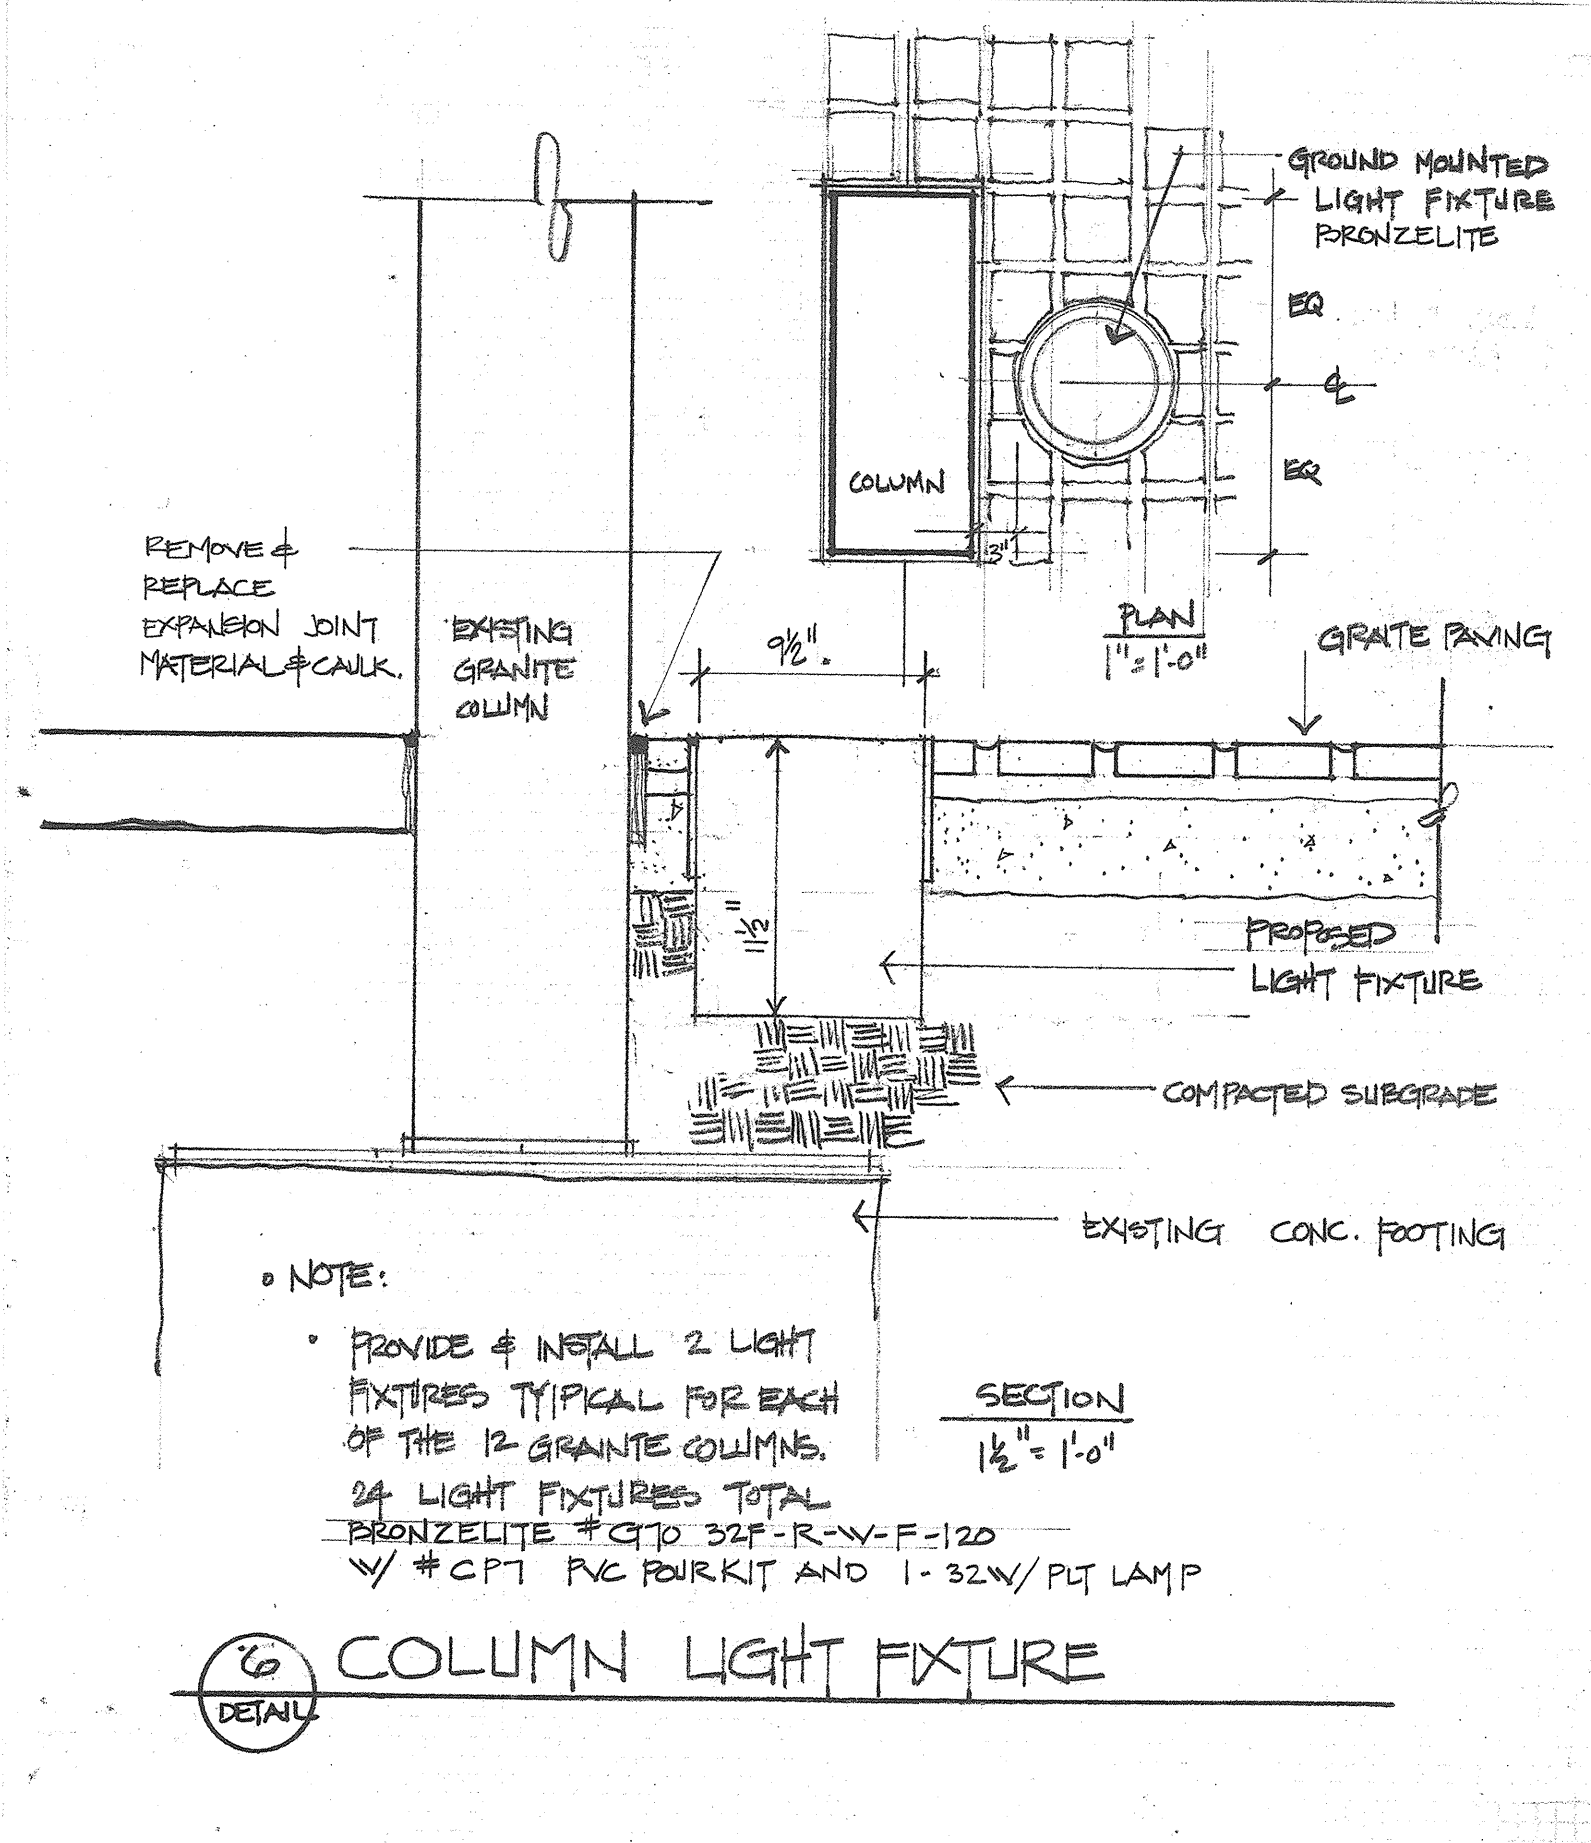 GROUND MOUNTED
LIGHT FIXTURE
BRONZELITE
EQ
℄
EQ
COLUMN
3"
PLAN
1"=1'-0"
REMOVE &
REPLACE
EXPANSION JOINT
MATERIAL & CAULK.
EXISTING
GRANITE
COLUMN
9½".
GRAITE PAVING
11½"
PROPOSED
LIGHT FIXTURE
COMPACTED SUBGRADE
EXISTING CONC. FOOTING
• NOTE:
• PROVIDE & INSTALL 2 LIGHT
FIXTURES TYIPICAL FOR EACH
OF THE 12 GRAINTE COLUMNS.
24 LIGHT FIXTURES TOTAL
BRONZELITE #G70 32F-R-W-F-120
W/ #CP7 PVC POUR KIT AND 1-32W/PLT LAMP
SECTION
1½"=1'-0"
6
DETAIL
COLUMN LIGHT FIXTURE